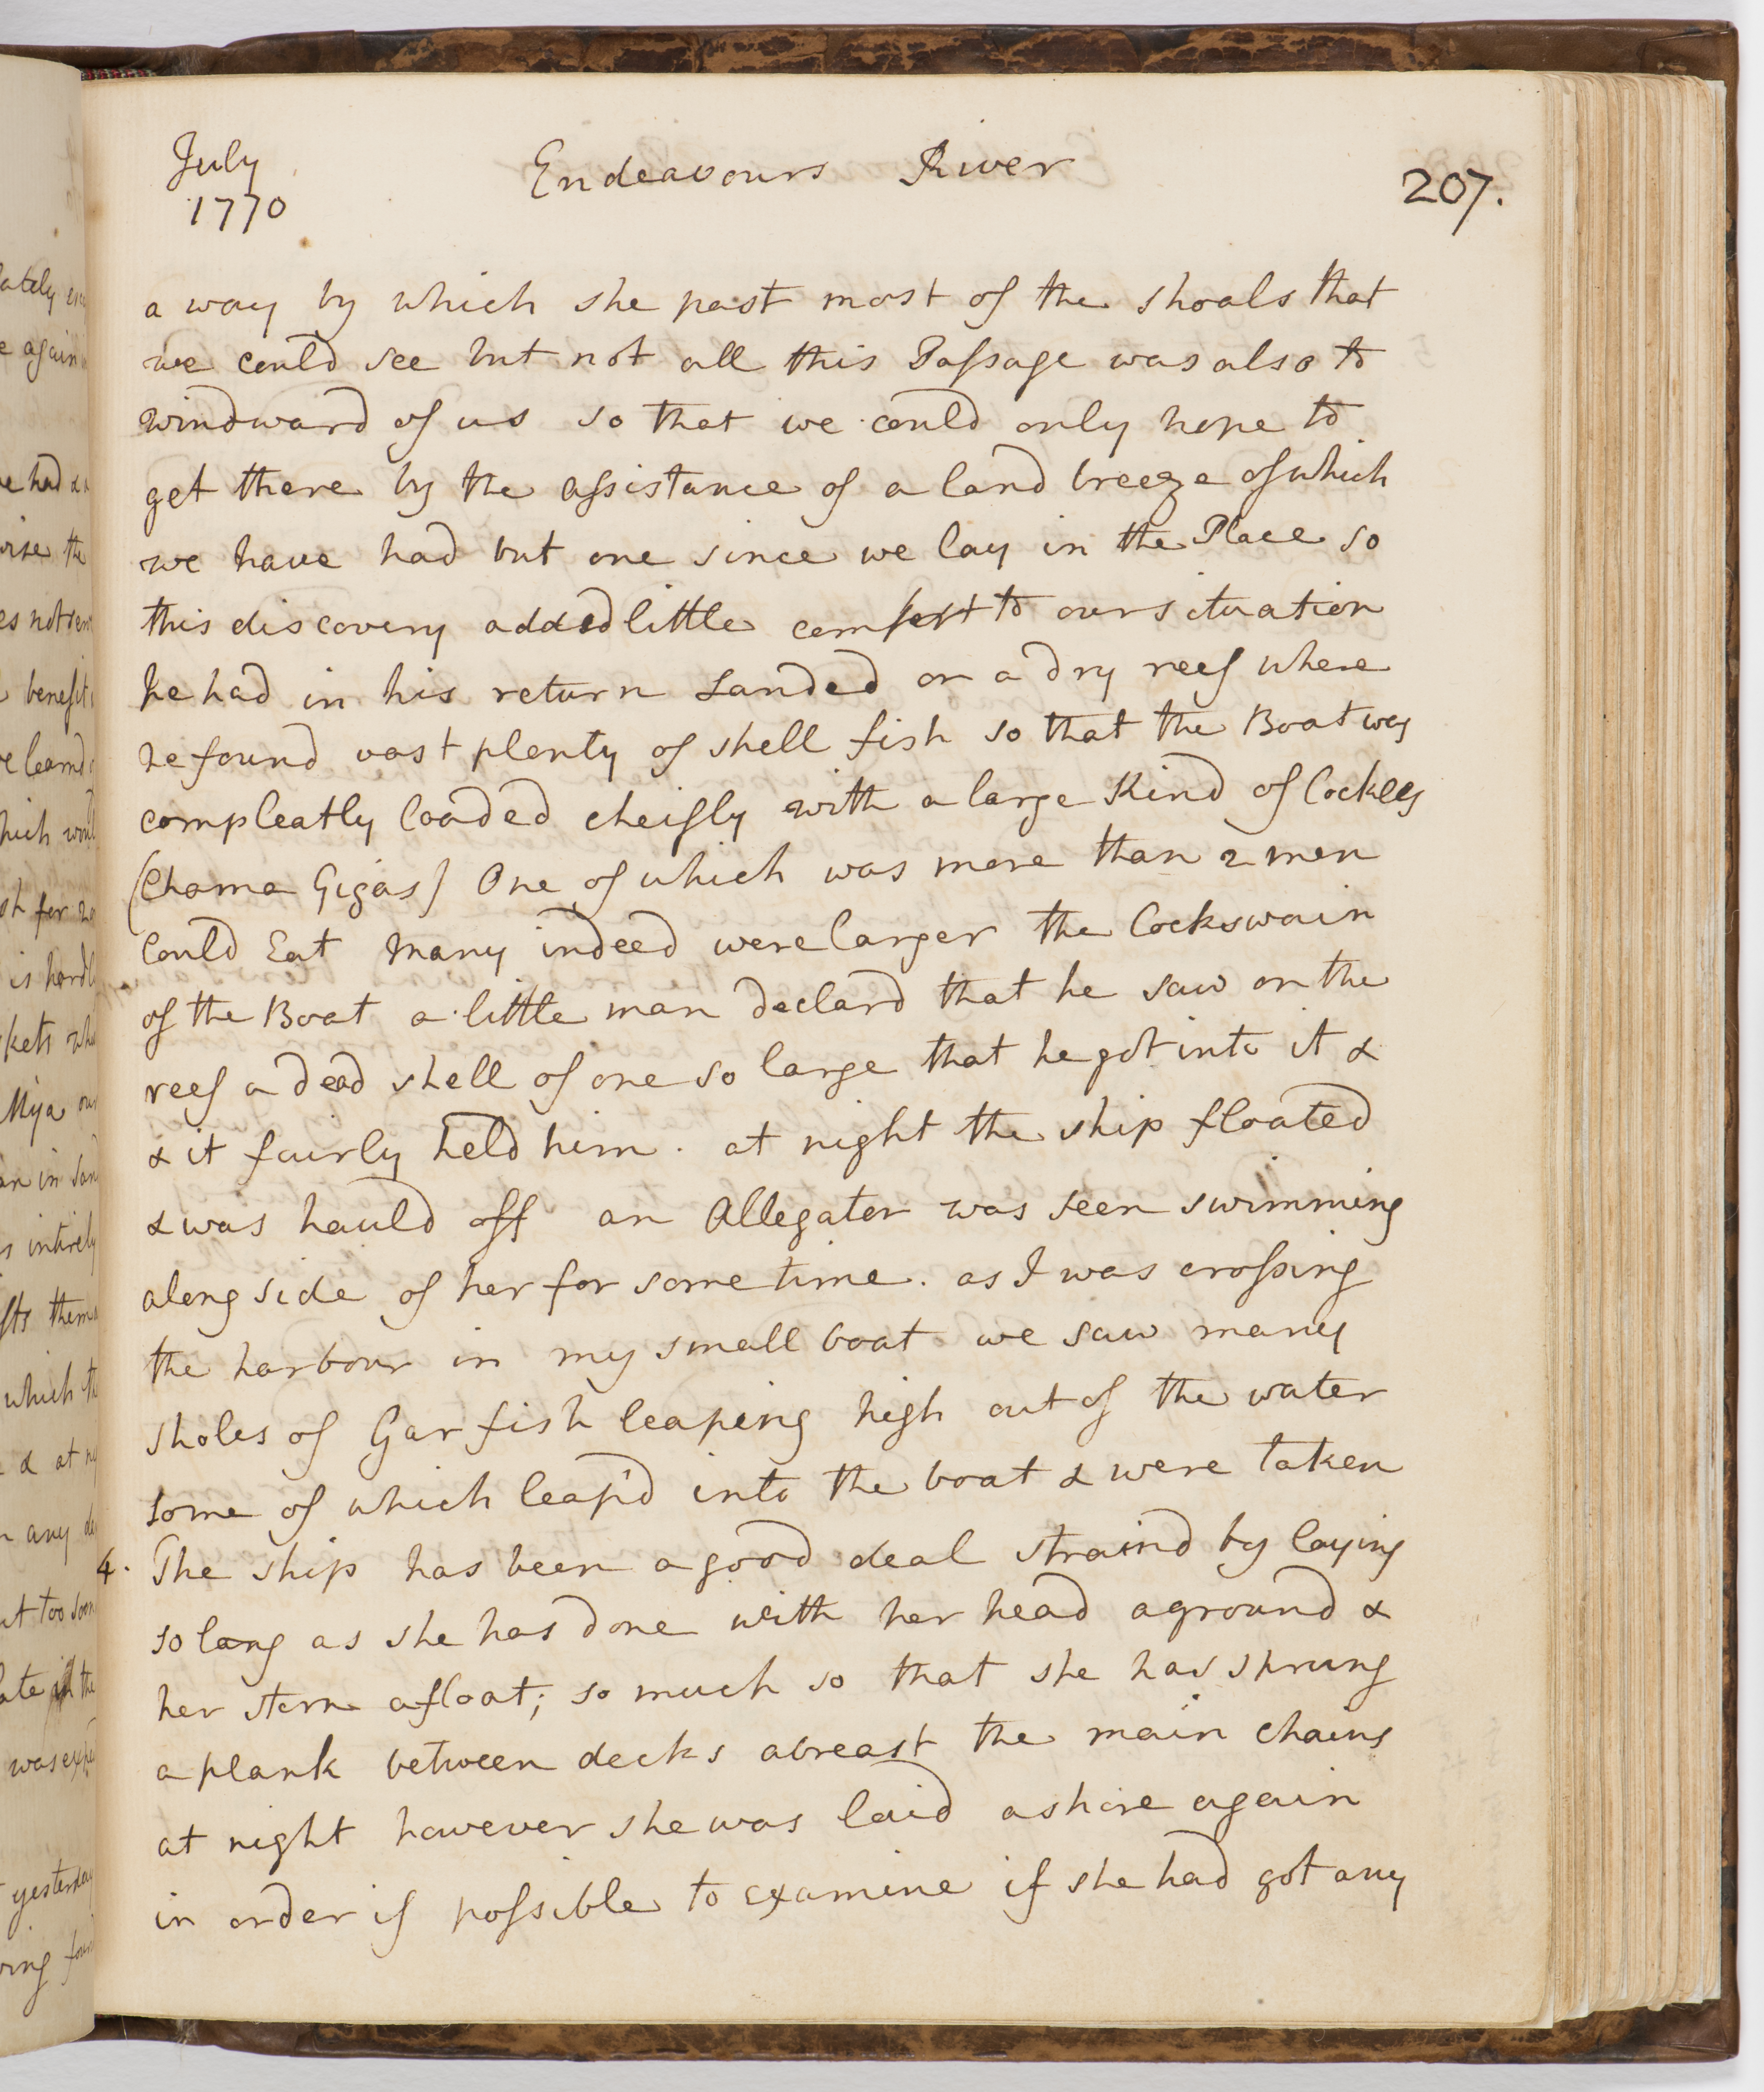 July
1770
Endeavours River
207.
a way by which she past most of the shoals that
we could see but not all this Passage was also to
windward of us so that we could only hope to
get there by the assistance of a land breeze of which
we have had but one since we lay in the Place so
this discovery added little comfort to our situation
he had in his return Landed on a dry reef where
he found vast plenty of shell fish so that the Boat was
compleatly loaded cheifly with a large Kind of Cockles
(Chama Gigas) One of which was more than 2 men
Could Eat Many indeed were larger the Cockswain
of the Boat a little man declard that he saw on the
reef a dead shell of one so large that he got into it &
& it fairly held him. at night the ship floated
& was hauld off an Allegator was seen swimming
along side of her for some time. as I was crossing
the harbour in my small boat we saw many
sholes of Gar fish leaping high out of the water
some of which leap'd into the boat & were taken
4. The ship has been a good deal straind by laying
so long as she has done with her head aground &
her stern afloat; so much so that she has sprung
a plank between decks abreast the main chains
at night however she was laid ashore again
in order if possible to examine if she had got any